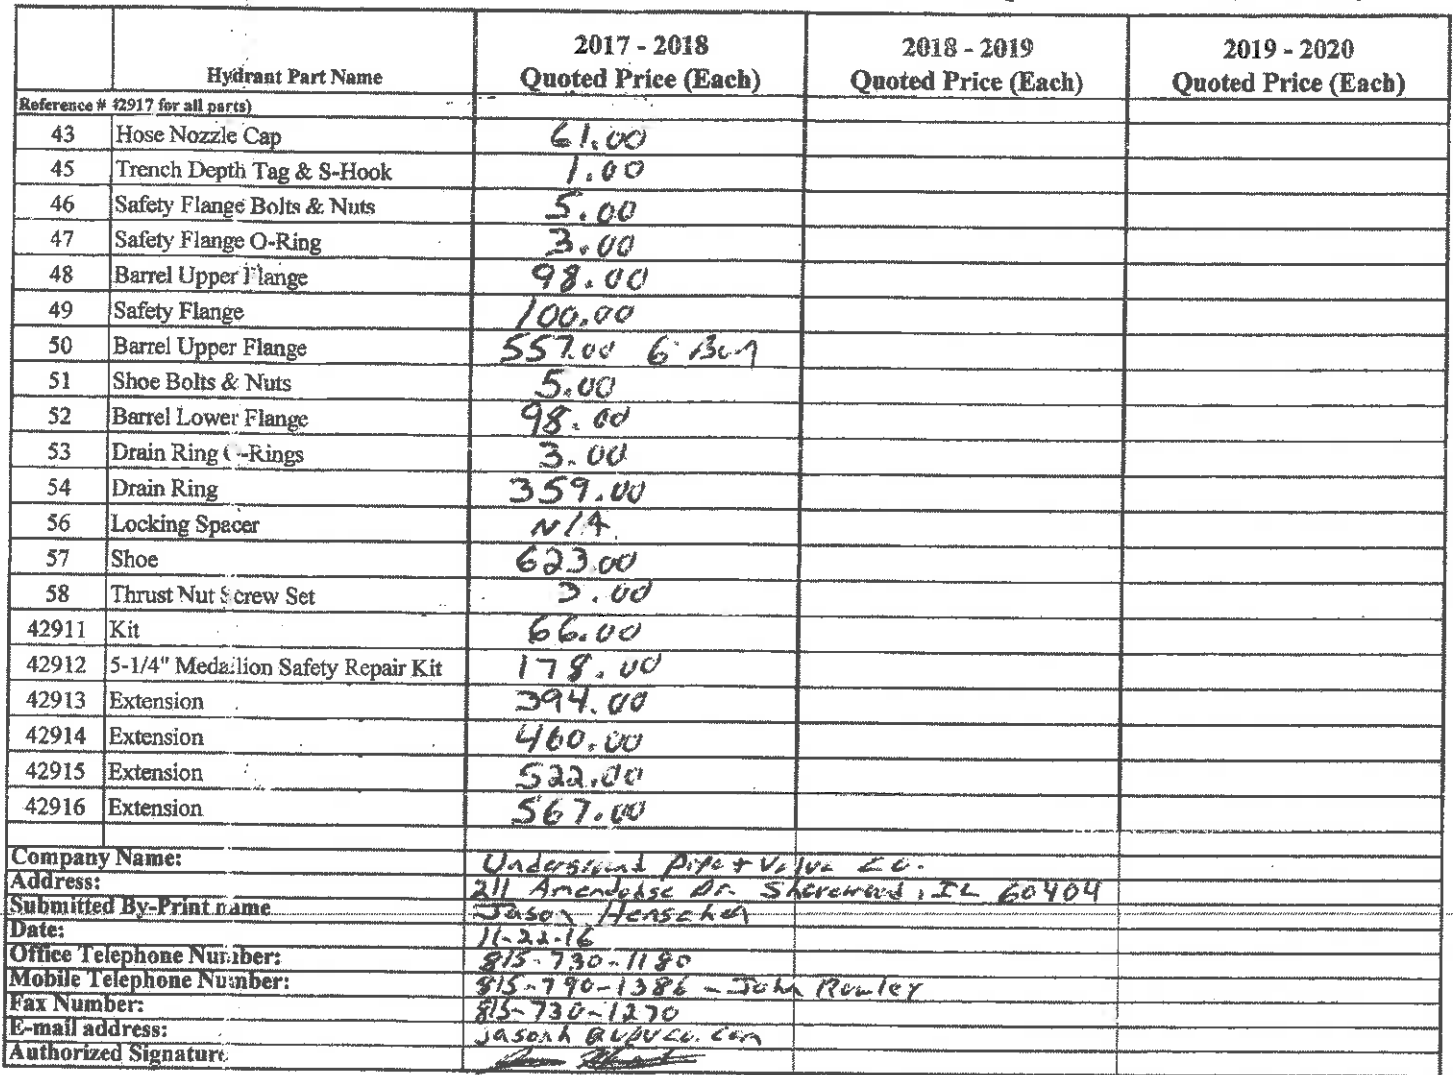 2017 - 2018 2018 - 2019 2019 - 2020
Hydrant Part Name Quoted Price (Each) Quoted Price (Each) Quoted Price (Each)
Reference # 42917 for all parts)
43 Hose Nozzle Cap 61.00
45 Trench Depth Tag & S-Hook 1.00
46 Safety Flange Bolts & Nuts 5.00
47 Safety Flange O-Ring 3.00
48 Barrel Upper Flange 98.00
49 Safety Flange 100.00
50 Barrel Upper Flange 557.00 6'
51 Shoe Bolts & Nuts 5.00
52 Barrel Lower Flange 98.00
53 Drain Ring O-Rings 3.00
54 Drain Ring 359.00
56 Locking Spacer N/A
57 Shoe 623.00
58 Thrust Nut Screw Set 3.00
42911 Kit 66.00
42912 5-1/4" Medallion Safety Repair Kit 178.00
42913 Extension 394.00
42914 Extension 460.00
42915 Extension 522.00
42916 Extension 567.00
Company Name: Underground Pipe & Valve Co.
Address: 211 Amendodge Dr. Shorewood, IL 60404
Submitted By-Print name Jason Henschen
Date: 11-22-16
Office Telephone Number: 815-730-1180
Mobile Telephone Number: 815-790-1386 - John Rowley
Fax Number: 815-730-1270
E-mail address: jasonh@upvco.com
Authorized Signature